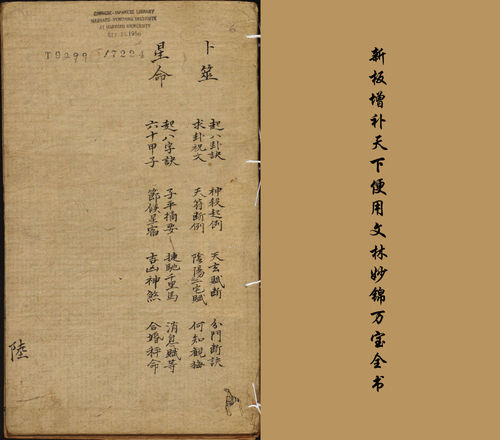 CHINESE-JAPANESE LIBRARY
HARVARD-YENCHING INSTITUTE
AT HARVARD UNIVERSITY
6
卜筮
起八卦訣 神殺起例 天玄賦斷 分門斷訣
求卦祝文 天符斷例 陰陽二宅賦 何知觀梅
星命
起八字訣 子平摘要 捷馳千里馬 消息賦等
六十甲子 星宿 吉凶神煞 合婚秤命
陸
新板增补天下便用文林妙锦万宝全书